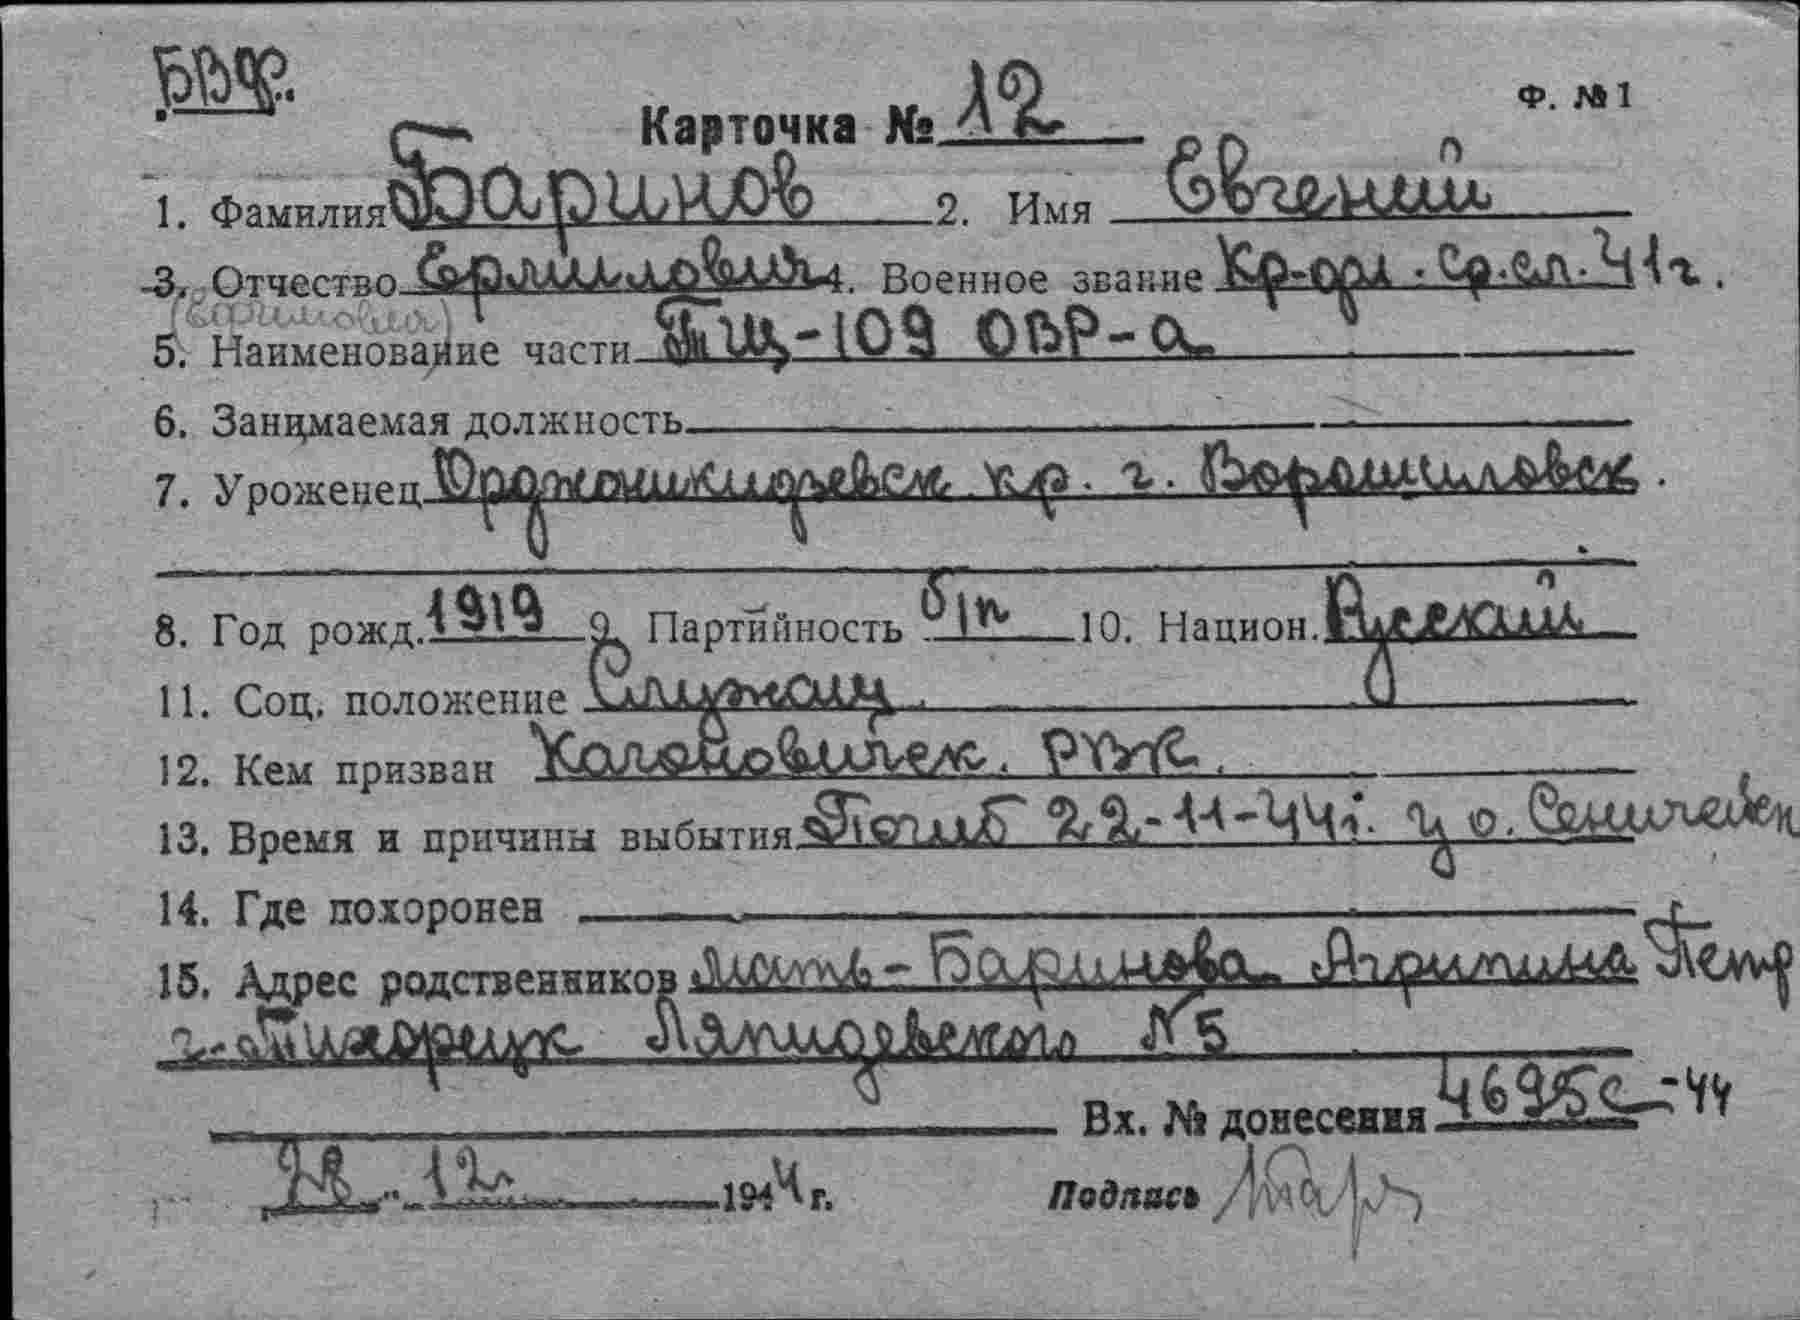 БВФ.
Ф. №1
Карточка № 12
1. Фамилия Баринов 2. Имя Евгений
3. Отчество Ермилович 4. Военное звание Кр-фл. Ср. сл. 41 г.
5. Наименование части ТЩ-109 ОВР-а
6. Занимаемая должность
7. Уроженец Орджоникидзевск. кр. г. Ворошиловск.
8. Год рожд. 1919 9. Партийность б/п 10. Национ. Русский
11. Соц. положение Служащ.
12. Кем призван РВК.
13. Время и причины выбытия Погиб 22-11-44 г. у о.
14. Где похоронен
15. Адрес родственников Мать - Баринова Петр
г. Пятигорск №5
Вх. № донесения 46956с-44
28.. 12 1944 г. Подпись